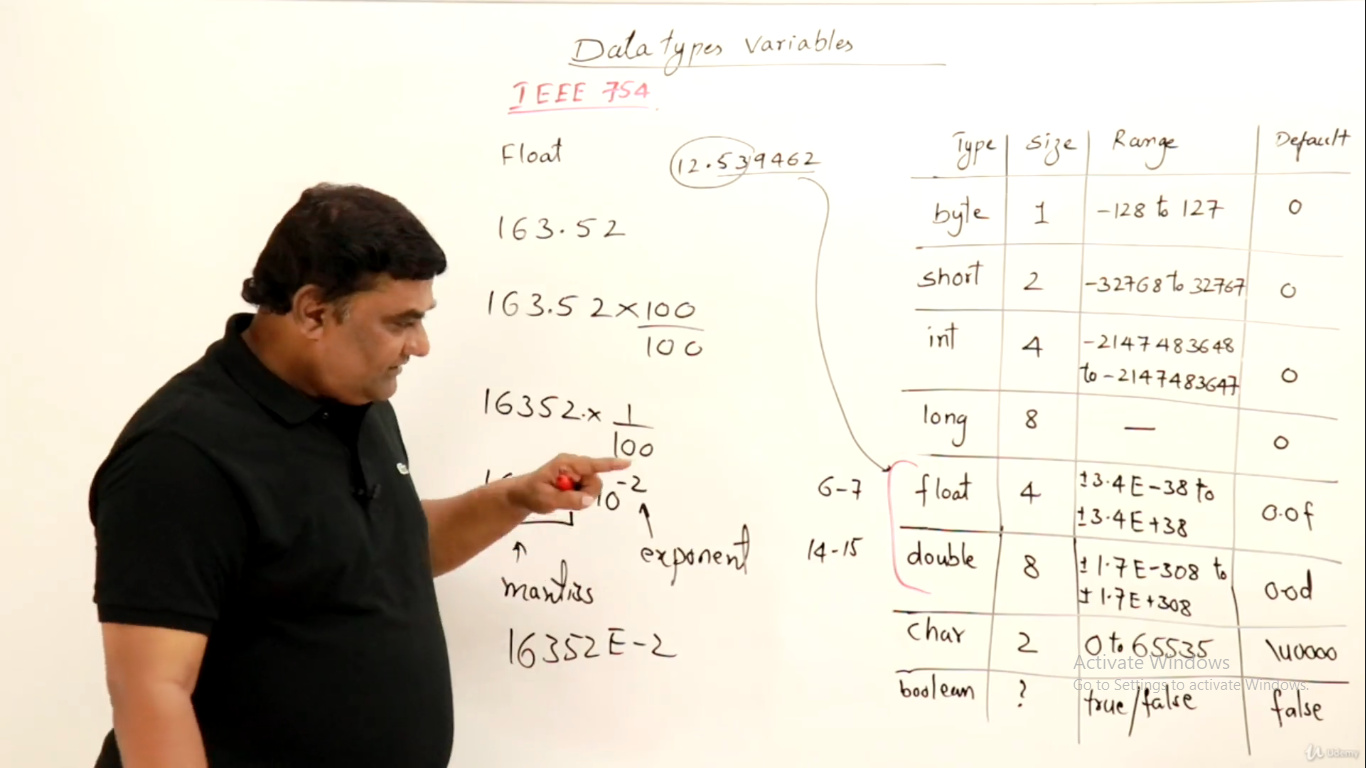 Data types Variables
IEEE 754
Float
12.539462
163.52
163.52 × 100
100
16352. × 1
100
10⁻²
mantiss
exponent
16352E-2
6-7
14-15
Type Size Range Default
byte 1 -128 to 127 0
short 2 -32768 to 32767 0
int 4 -2147483648
to -2147483647 0
long 8 — 0
float 4 ±3.4E-38 to
±3.4E+38 0.0f
double 8 ±1.7E-308 to
±1.7E+308 0.0d
char 2 0 to 65535 \u0000
boolean ? true/false false
Activate Windows
Go to Settings to activate Windows.
Udemy